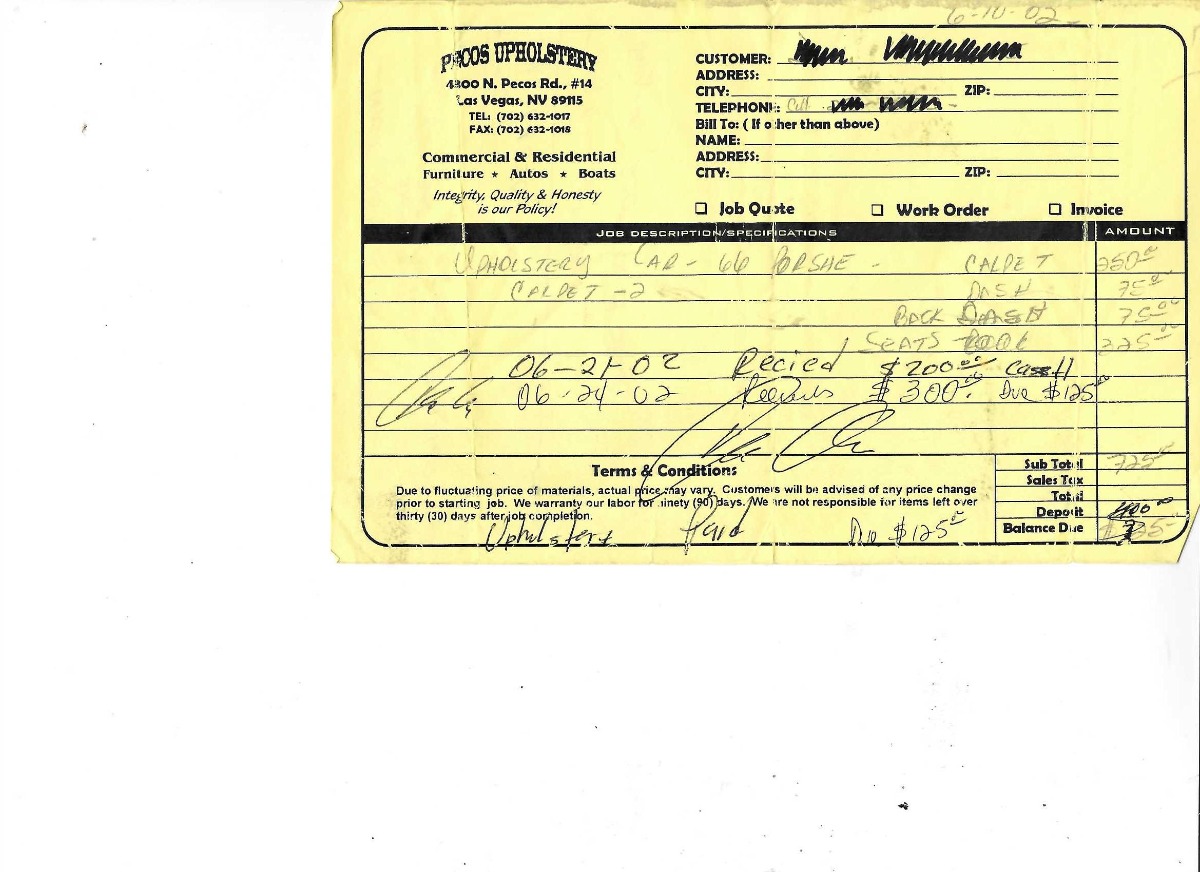 6-10-02
PECOS UPHOLSTERY
4300 N. Pecos Rd., #14
Las Vegas, NV 89115
TEL: (702) 632-1017
FAX: (702) 632-1018
Commercial & Residential
Furniture ★ Autos ★ Boats
Integrity, Quality & Honesty
is our Policy!
CUSTOMER:
ADDRESS:
CITY: ZIP:
TELEPHONE: Cell
Bill To: ( If other than above)
NAME:
ADDRESS:
CITY: ZIP:
☐ Job Quote ☐ Work Order ☐ Invoice
JOB DESCRIPTION/SPECIFICATIONS AMOUNT
UPHOLSTERY CAR - 66 PORSHE - CALPET 350.00
CALPET - 2 DASH 75.00
BACK DASH 75.00
SEATS 225.00
06-21-02 Recied $200.00 CASH
06-24-02 $300.00 Due $125.00
Terms & Conditions
Due to fluctuating price of materials, actual price may vary. Customers will be advised of any price change
prior to starting job. We warranty our labor for ninety (90) days. We are not responsible for items left over
thirty (30) days after job completion.
Sub Total 725
Sales Tax
Total
Deposit 400.00
Balance Due
Upholstery Paid Due $125.00